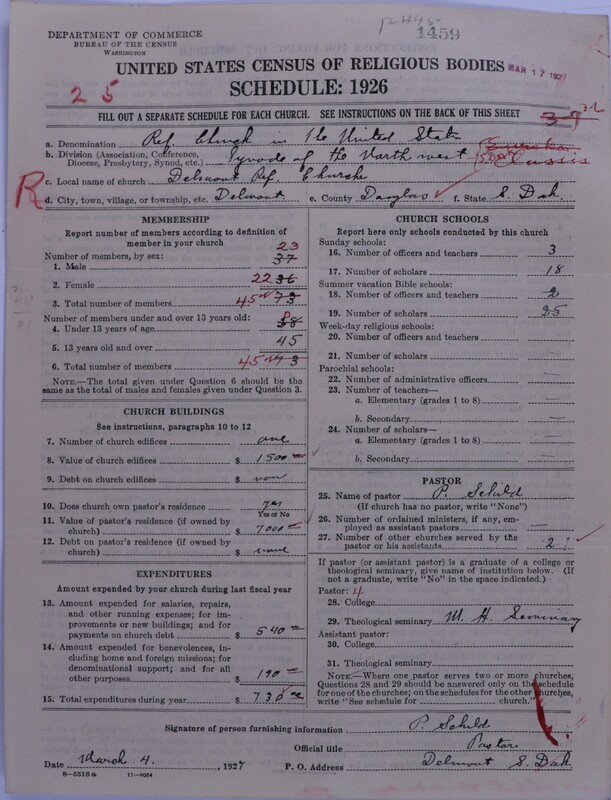 1459
DEPARTMENT OF COMMERCE
BUREAU OF THE CENSUS
WASHINGTON
UNITED STATES CENSUS OF RELIGIOUS BODIES
MAR 17 1927
SCHEDULE: 1926
25
FILL OUT A SEPARATE SCHEDULE FOR EACH CHURCH. SEE INSTRUCTIONS ON THE BACK OF THIS SHEET
a. Denomination Ref. Church in the United State
b. Division (Association, Conference, Diocese, Presbytery, Synod, etc.) Synode of the Northwest
c. Local name of church Delmont Ref. Church
R
d. City, town, village, or township, etc. Delmont e. County Douglas f. State S. Dak.
MEMBERSHIP
Report number of members according to definition of
member in your church
Number of members, by sex:
1. Male 37 23
2. Female 22 36
3. Total number of members 45 73
Number of members under and over 13 years old:
4. Under 13 years of age 38
5. 13 years old and over 45
6. Total number of members 45 73
NOTE.—The total given under Question 6 should be the
same as the total of males and females given under Question 3.
CHURCH BUILDINGS
See instructions, paragraphs 10 to 12
7. Number of church edifices one
8. Value of church edifices $ 1500
9. Debt on church edifices $ non
10. Does church own pastor's residence yes
Yes or No
11. Value of pastor's residence (if owned by
church) $ 7000
12. Debt on pastor's residence (if owned by
church) $ none
EXPENDITURES
Amount expended by your church during last fiscal year
13. Amount expended for salaries, repairs,
and other running expenses; for im-
provements or new buildings; and for
payments on church debt $ 540
14. Amount expended for benevolences, in-
cluding home and foreign missions; for
denominational support; and for all
other purposes $ 190
15. Total expenditures during year $ 730
CHURCH SCHOOLS
Report here only schools conducted by this church
Sunday schools:
16. Number of officers and teachers 3
17. Number of scholars 18
Summer vacation Bible schools:
18. Number of officers and teachers 2
19. Number of scholars 25
Week-day religious schools:
20. Number of officers and teachers —
21. Number of scholars —
Parochial schools:
22. Number of administrative officers —
23. Number of teachers—
a. Elementary (grades 1 to 8) —
b. Secondary —
24. Number of scholars—
a. Elementary (grades 1 to 8) —
b. Secondary —
PASTOR
25. Name of pastor P. Schild
(If church has no pastor, write "None")
26. Number of ordained ministers, if any, em-
ployed as assistant pastors —
27. Number of other churches served by the
pastor or his assistants 2
If pastor (or assistant pastor) is a graduate of a college or
theological seminary, give name of institution below. (If
not a graduate, write "No" in the space indicated.)
Pastor: 4
28. College
29. Theological seminary M. H. Seminary
Assistant pastor:
30. College
31. Theological seminary —
NOTE.—Where one pastor serves two or more churches,
Questions 28 and 29 should be answered only on the schedule
for one of the churches; on the schedules for the other churches,
write "See schedule for church."
Signature of person furnishing information P. Schild
Official title Pastor
Date March 4. , 1927 P. O. Address Delmont S. Dak
8-5518a 11-9054